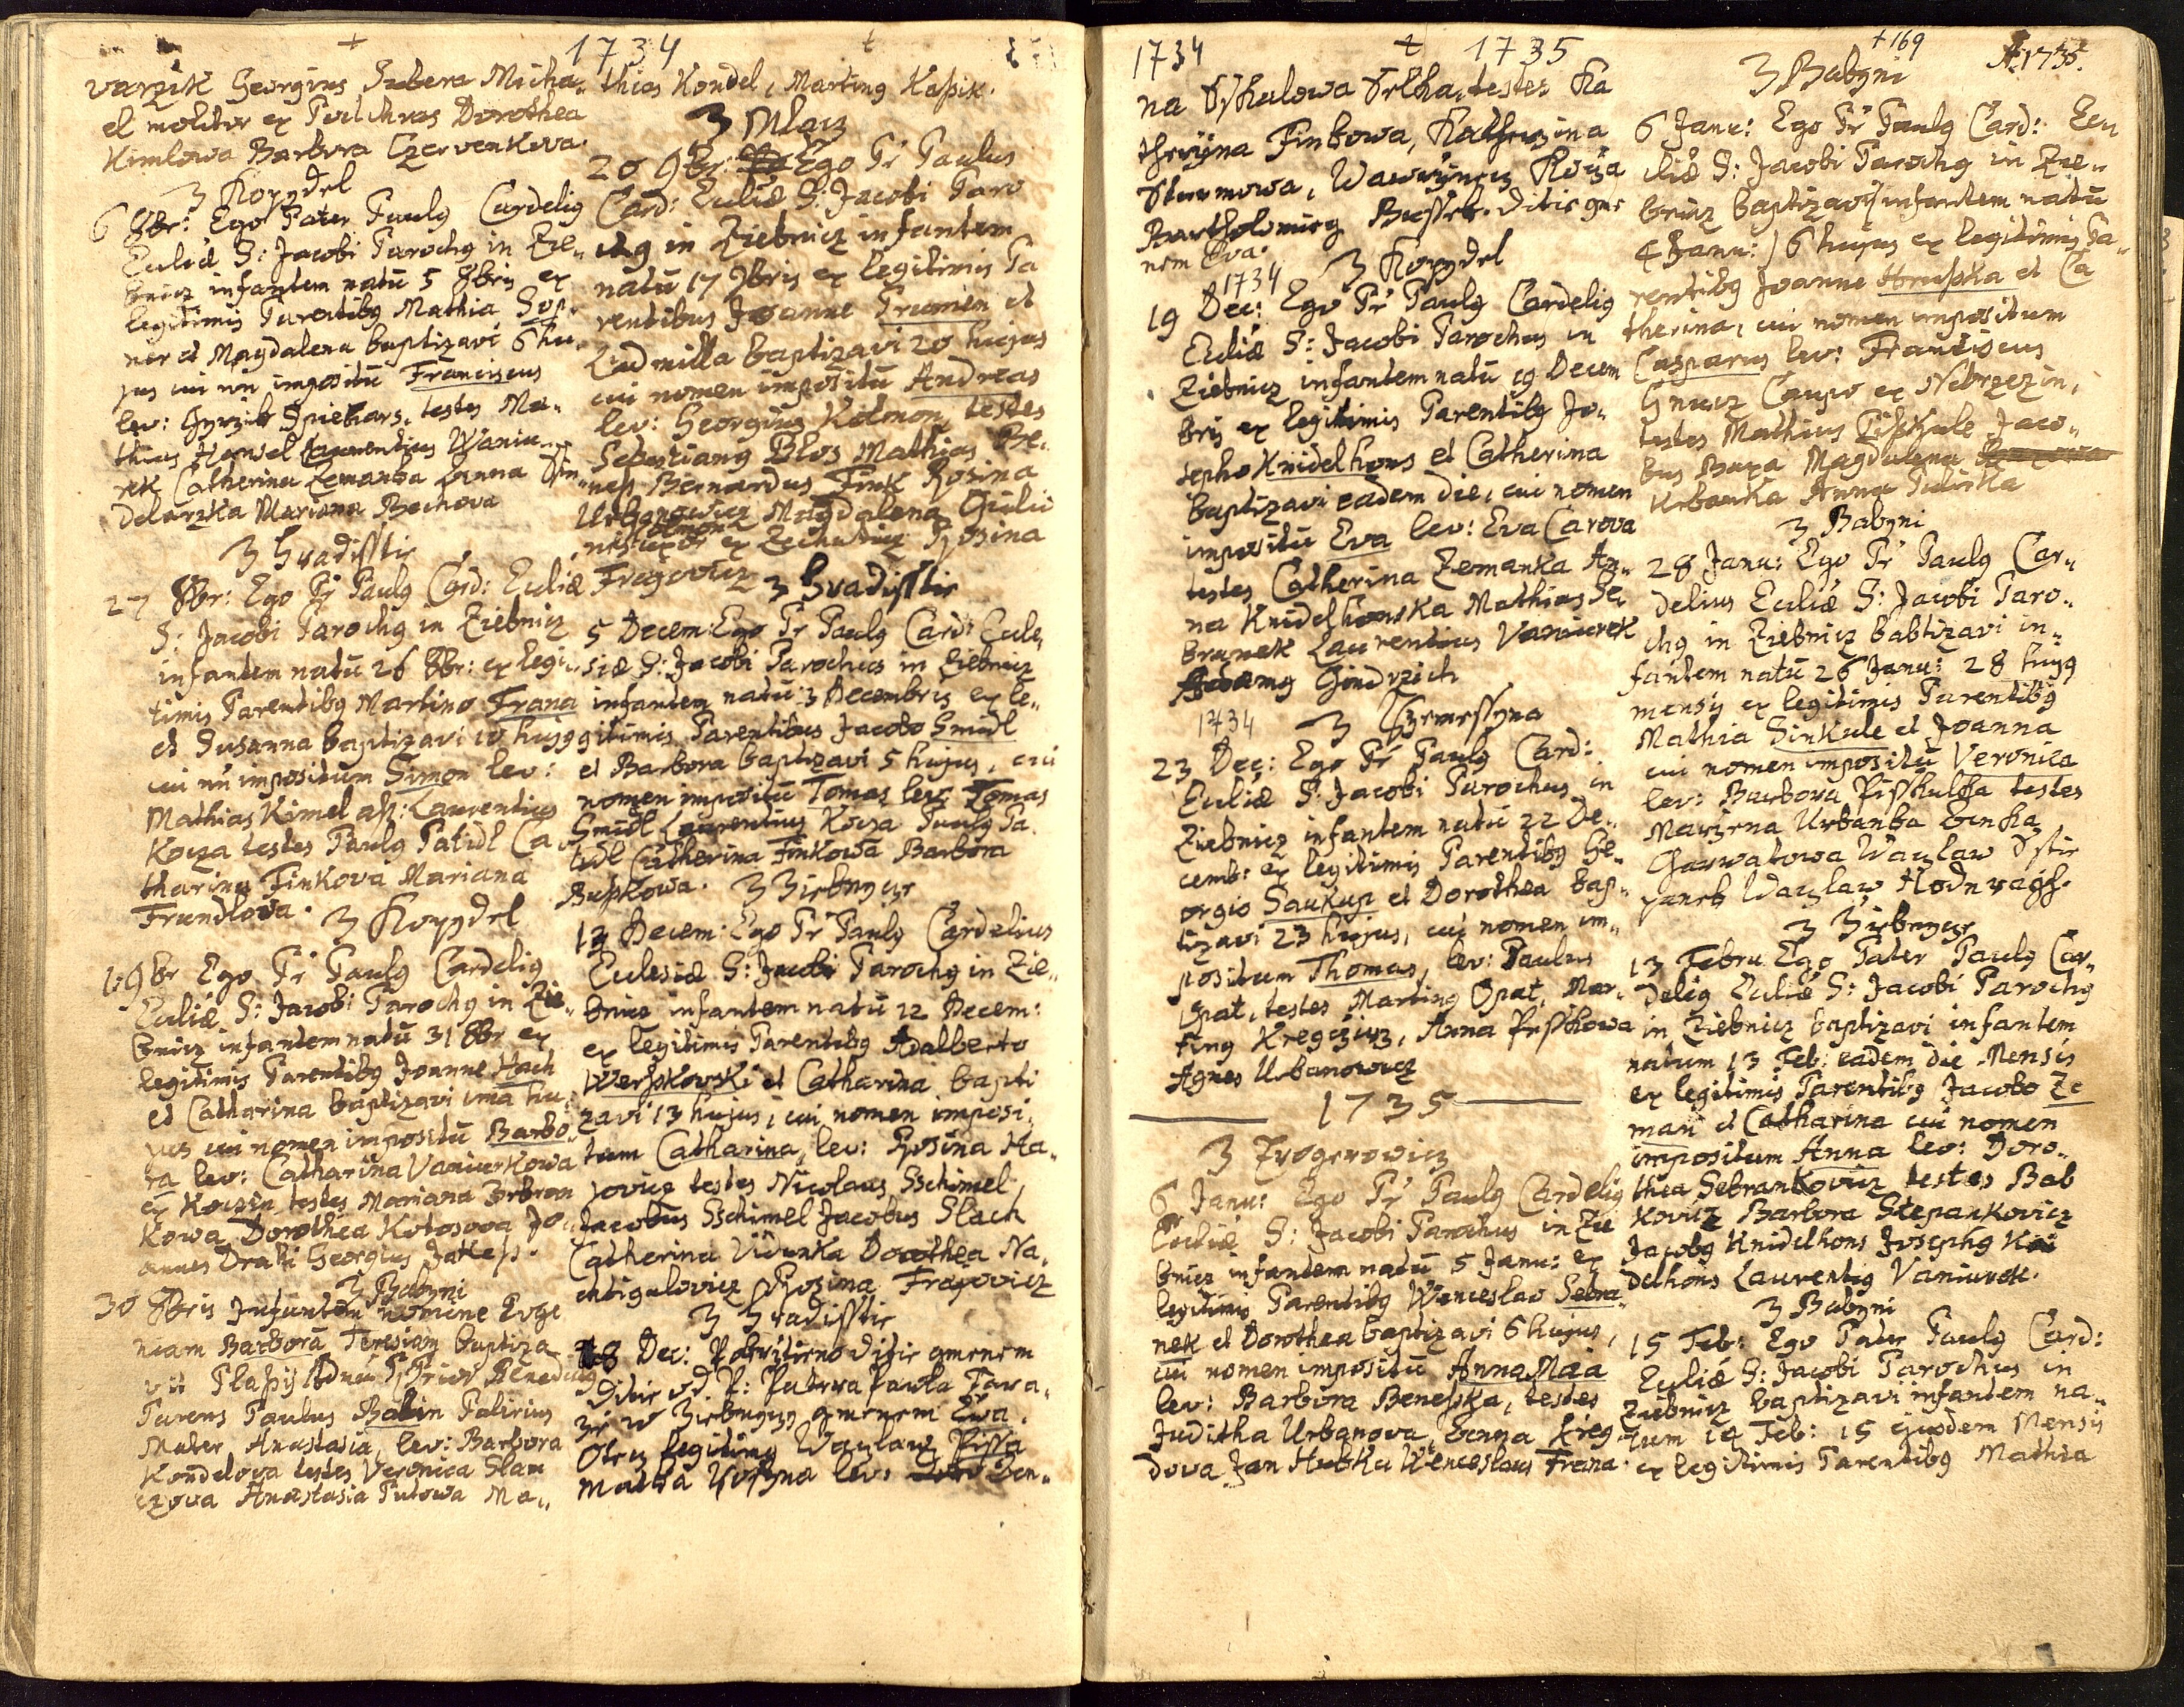 1734
varzik Georgius Subera Micha„
el molitor ex Pulchras Dorothea
Kimlowa Barbora Czervenkova.
Z Kozodel
6 8br: Ego Pater Paulq Cardeliq
Eccliæ S: Jacobi Parochq in Zie„
bnicz infantem natū 5 8bris ex
legitimis Parentibq Mathia
ner et Magdalena baptizavi 6 hu„
jus cui nn impositū Franciscus
lev: Spiekars, testes Ma„
thias Laurentius Waniu„
rek Catherina Zemanka Anna
delarzka Mariana Bechova
Z Hradisstie
27 8br: Ego Pr Paulq Card: Eccliæ
S: Jacobi Parochq in Ziebnicz
infantem natū 26 8br: ex legi„
timis Parentibq Martino Frana
et Susanna baptizavi hujq
cui nn impositum Simon lev:
Mathias Kimel ass: Laurentius
Koza testes Paulq Patidl Ca„
tharina Finkova Mariana
Frundlova.
Z Kozodel
1 9br Ego Pr Paulq Cardeliq
Eccliæ S: Jacobi Parochq in Zie„
bnicz infantem natū 31 8br ex
legitimis Parentibq Joanne Hach
et Catharina baptizavi ima hu„
jus cui nomen impositū Barbo„
ra lev: Catharina Vaniurkowa
ex testes Mariana
kowa Dorothea Kotosova Jo„
annes Georgius
Z Babyni
30 8bris Infantem nomine Euge
niam Barboram Teresiam baptiza„
vit
Parens Paulus Babin
Mater Anastasia, lev: Barbora
Kondelova testes Veronica Slan
czova Anastasia Putowa Ma„
thias Kondel, Martinq Kassik.
Z Mlacz
20 9br: Ego Pr Paulus
Card: Eccliæ S: Jacobi Paro
chq in Ziebnicz infantem
natū 17 9bris ex legitimis Pa
rentibus Joanne Trumen et
Ludmilla baptizavi 20 hujus
cui nomen impositū Andreas
lev: Georgius Kolmon testes
Sebastianq Blos Mathias Be„
ness Bernardus Fink Rosina
Urbanowicz Magdalena
ex Rosina
Frajovicz
Z Hradisstie
5 Decem: Ego Pr Paulq Card: Eccle„
siæ S: Jacobi Parochus in Ziebnicz
infantem natū 3 Decembris ex le„
gitimis Parentibus Jacobo Smidl
et Barbora baptizavi 5 hujus, cui
nomen impositū Tomas lev: Tomas
Smidl Laurentius Koza Paulq Pa„
tidl Catherina Finkowa Barbora
Busskowa.
Z Ziebnycze
13 Decem: Ego Pr Paulq Cardelius
Ecclesiæ S: Jacobi Parochq in Zie„
bnicz infantem natū 12 Decem:
ex legitimis Parentibq Adalberto
Werskovski et Catharina bapti
zavi 13 hujus, cui nomen imposi„
tum Catharina, lev: Rosina Ha„
jovicz testes Nicolaus Sschimel
Jacobus Sschimel Jacobus Slach
Catherina Vidunka Dorothea Na„
chtigulovicz Rosina Frajovicz
Z Hradisstie
18 Dec: Pokrztieno Ditie gmenem
Ditie od P: Patera Pawla Fara„
rze w Ziebnyczy gmenem Ewa.
Otecz legitimq Waczlaw Pissa
Matka Rosyna lev: Don„
1734 1735
na Sskulowa Selka, testes Ka
therzyna Finkowa, Katherzina
Sturmowa, Wawrzynecz Koza
Bartholomieg Bussek. Ditie gme
nem Eva.
1734 Z Kozodel
19 Dec: Ego Pr Paulq Cardeliq
Eccliæ S: Jacobi Parochus in
Ziebnicz infantem natū 19 Decem
bris ex legitimis Parentibq Jo„
sepho Knidelhons et Catherina
baptizavi eadem die, cui nomen
impositū Eva lev: Eva Carova
testes Catherina Zemanka An„
na Knidelhonska Mathias Se„
branek Laurentius Vaniurek
Adamq Gindrzich
1734 Z
23 Dec: Ego Pr Paulq Card:
Eccliæ S: Jacobi Parochus in
Ziebnicz infantem natū 22 De„
cemb: ex legitimis Parentibq Ge„
orgio Saukup et Dorothea bap„
tizavi 23 hujus, cui nomen im„
positum Thomas, lev: Paulus
Opat, testes Martinq Opat, Mar„
tinq Kreczicz, Anna Pisskowa
Agnes Urbanowicz
1735
Z Trogerowicz
6 Janu: Ego Pr Paulq Cardeliq
Eccliæ S: Jacobi Parochus in Zie
bnicz infantem natū 5 Janu: ex
legitimis Parentibq Wenceslao Sebra„
nek et Dorothea baptizavi 6 hujus,
cui nomen impositū Anna Maa
lev: Barbora Benesska, testes
Juditha Urbanova, Anna Kreg„
dova Jan Hubka Wenceslaus Frana.
+169
A: 1735.
Z Babyni
6 Janu: Ego Pr Paulq Card: Ecc
cliæ S: Jacobi Parochq in Zie„
bnicz baptizavi infantem natū
4 Janu: 6 hujus ex legitimis Pa„
rentibq Joanne Hrusska et Ca
therina, cui nomen impositum
Casparus lev: Franciscus
Hnusz Caupo ex Nebrzezin,
testes Mathius Pisskule Jaco„
bus Buxa Magdalena
Urbanka Anna
Z Babyni
28 Janu: Ego Pr Paulq Car„
delius Eccliæ S: Jacobi Paro„
chq in Ziebnicz babtizavi in„
fantem natū 26 Janu: 28 hujq
mensis ex legitimis Parentibq
Mathia Sinkule et Joanna
cui nomen impositū Veronica
lev: Barbora Pisskulka testes
Marzena Urbanka Anka
Charwatowa Waczlaw
Waczlaw
Z Ziebnycze
13 Febru Ego Pater Paulq Car„
deliq Eccliæ S: Jacobi Parochq
in Ziebnicz baptizavi infantem
natum 13 Feb: eadem die Mensis
ex legitimis Parentibq Jacobo Ze
man et Catharina cui nomen
impositum Anna lev: Doro„
thea Sebrankovicz testes Bab
kovicz Barbora Stepankovicz
Jacobq Knidelhons Josephq Kni
delhons Laurentiq Vaniurek.
Z Babyni
15 Feb: Ego Pater Paulq Card:
Eccliæ S: Jacobi Parochus in
Ziebnicz baptizavi infantem na„
tum 14 Feb: 15 ejusdem Mensis
ex legitimis Parentibq Mathia